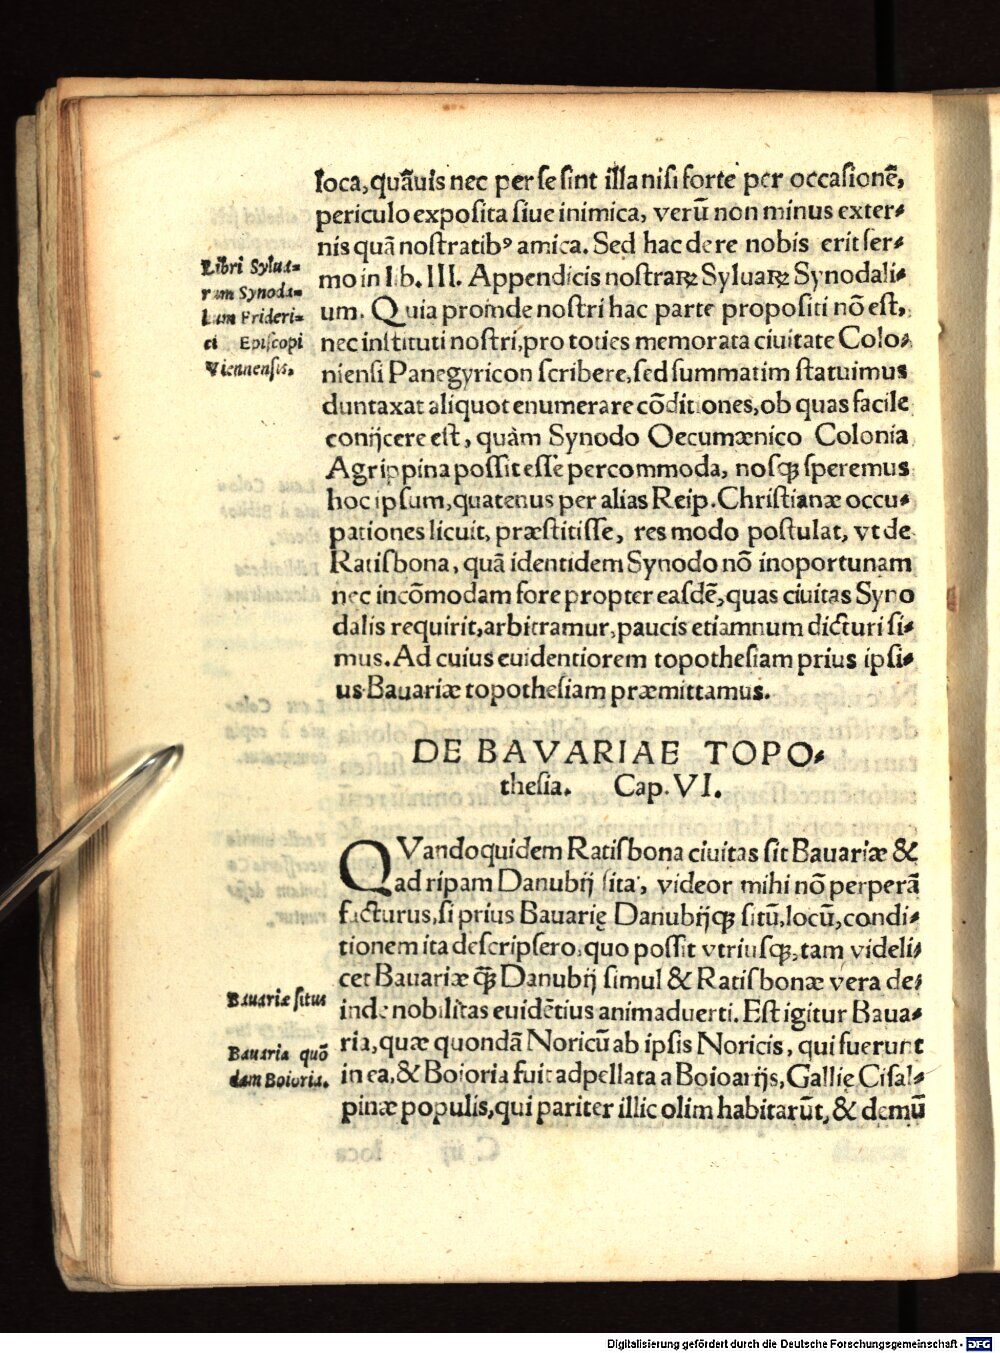 loca, quãuis nec per se sint illa nisi forte per occasionẽ,
periculo exposita siue inimica, verũ non minus exter-
nis quã nostratibꝰ amica. Sed hac de re nobis erit ser-
mo in Lib. III. Appendicis nostraꝝ Syluaꝝ Synodali-
um. Quia proinde nostri hac parte propositi nõ est,
nec instituti nostri, pro toties memorata ciuitate Colo-
niensi Panegyricon scribere, sed summatim statuimus
duntaxat aliquot enumerare cõditiones, ob quas facile
conijcere est, quàm Synodo Oecumænico Colonia
Agrippina possit esse percommoda, nosqꝫ speremus
hoc ipsum, quatenus per alias Reip. Christianæ occu-
pationes licuit, præstitisse, res modo postulat, vt de
Ratisbona, quã identidem Synodo nõ inoportunam
nec incõmodam fore propter easdẽ, quas ciuitas Syno
dalis requirit, arbitramur, paucis etiamnum dicturi si-
mus. Ad cuius euidentiorem topothesiam prius ipsi-
us Bauariæ topothesiam præmittamus.
Libri Sylua-
rum Synoda-
lium Frideri-
ci Episcopi
Viennensis.
DE BAVARIAE TOPO-
thesia. Cap. VI.
QVandoquidem Ratisbona ciuitas sit Bauariæ &
ad ripam Danubij sita, videor mihi nõ perperã
facturus, si prius Bauarię Danubijqꝫ sitũ, locũ, condi-
tionem ita descripsero, quo possit vtriusqꝫ, tam videli-
cet Bauariæ qꝫ̃ Danubij simul & Ratisbonæ vera de-
inde nobilitas euidẽtius animaduerti. Est igitur Baua-
ria, quæ quondã Noricũ ab ipsis Noricis, qui fuerunt
in ea, & Boioria fuit adpellata a Boioarijs, Gallię Cisal-
pinæ populis, qui pariter illic olim habitarũt, & demũ
Bauariæ situs
Bauaria quõ
dam Boioria.
Digitalisierung gefördert durch die Deutsche Forschungsgemeinschaft - DFG